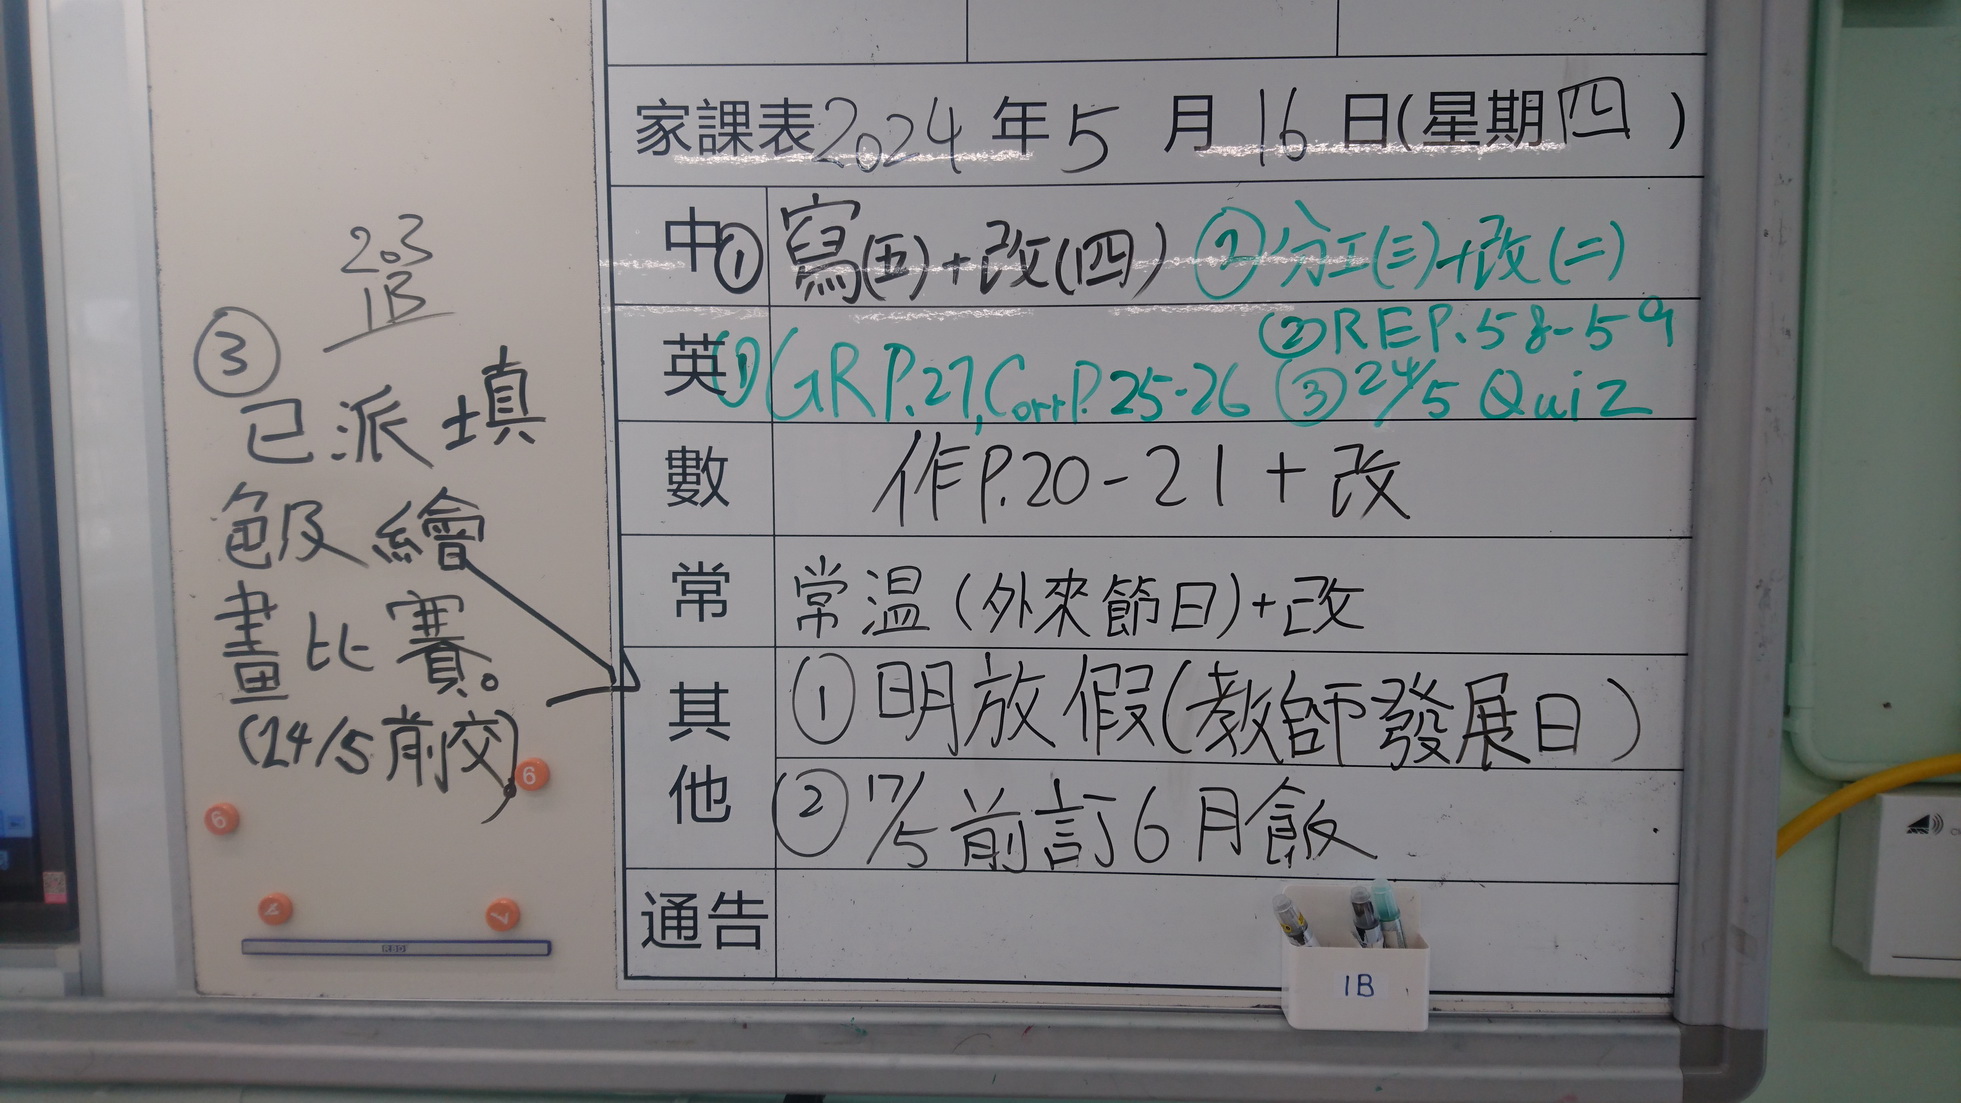 家課表2024年5月16日(星期四)
中①寫(五)+改(四) ②分工(三)+改(二)
英①GR P.27, Corr P.25-26 ②RE P.58-59 ③24/5 Quiz
數 作P.20-21+改
常 常温(外來節日)+改
其他 ①明放假(教師發展日)
②17/5前訂6月飯
通告
203
1B
③
已派填
色及繪
畫比賽。
(24/5前交)
1B